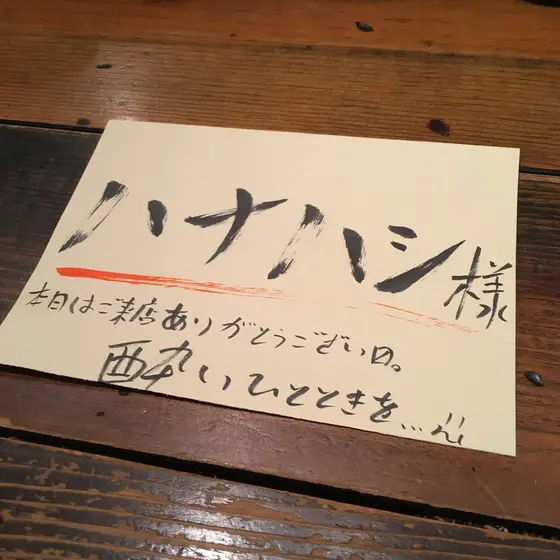 ハナハシ様
本日はご来店ありがとうございます。
酔いひとときを...